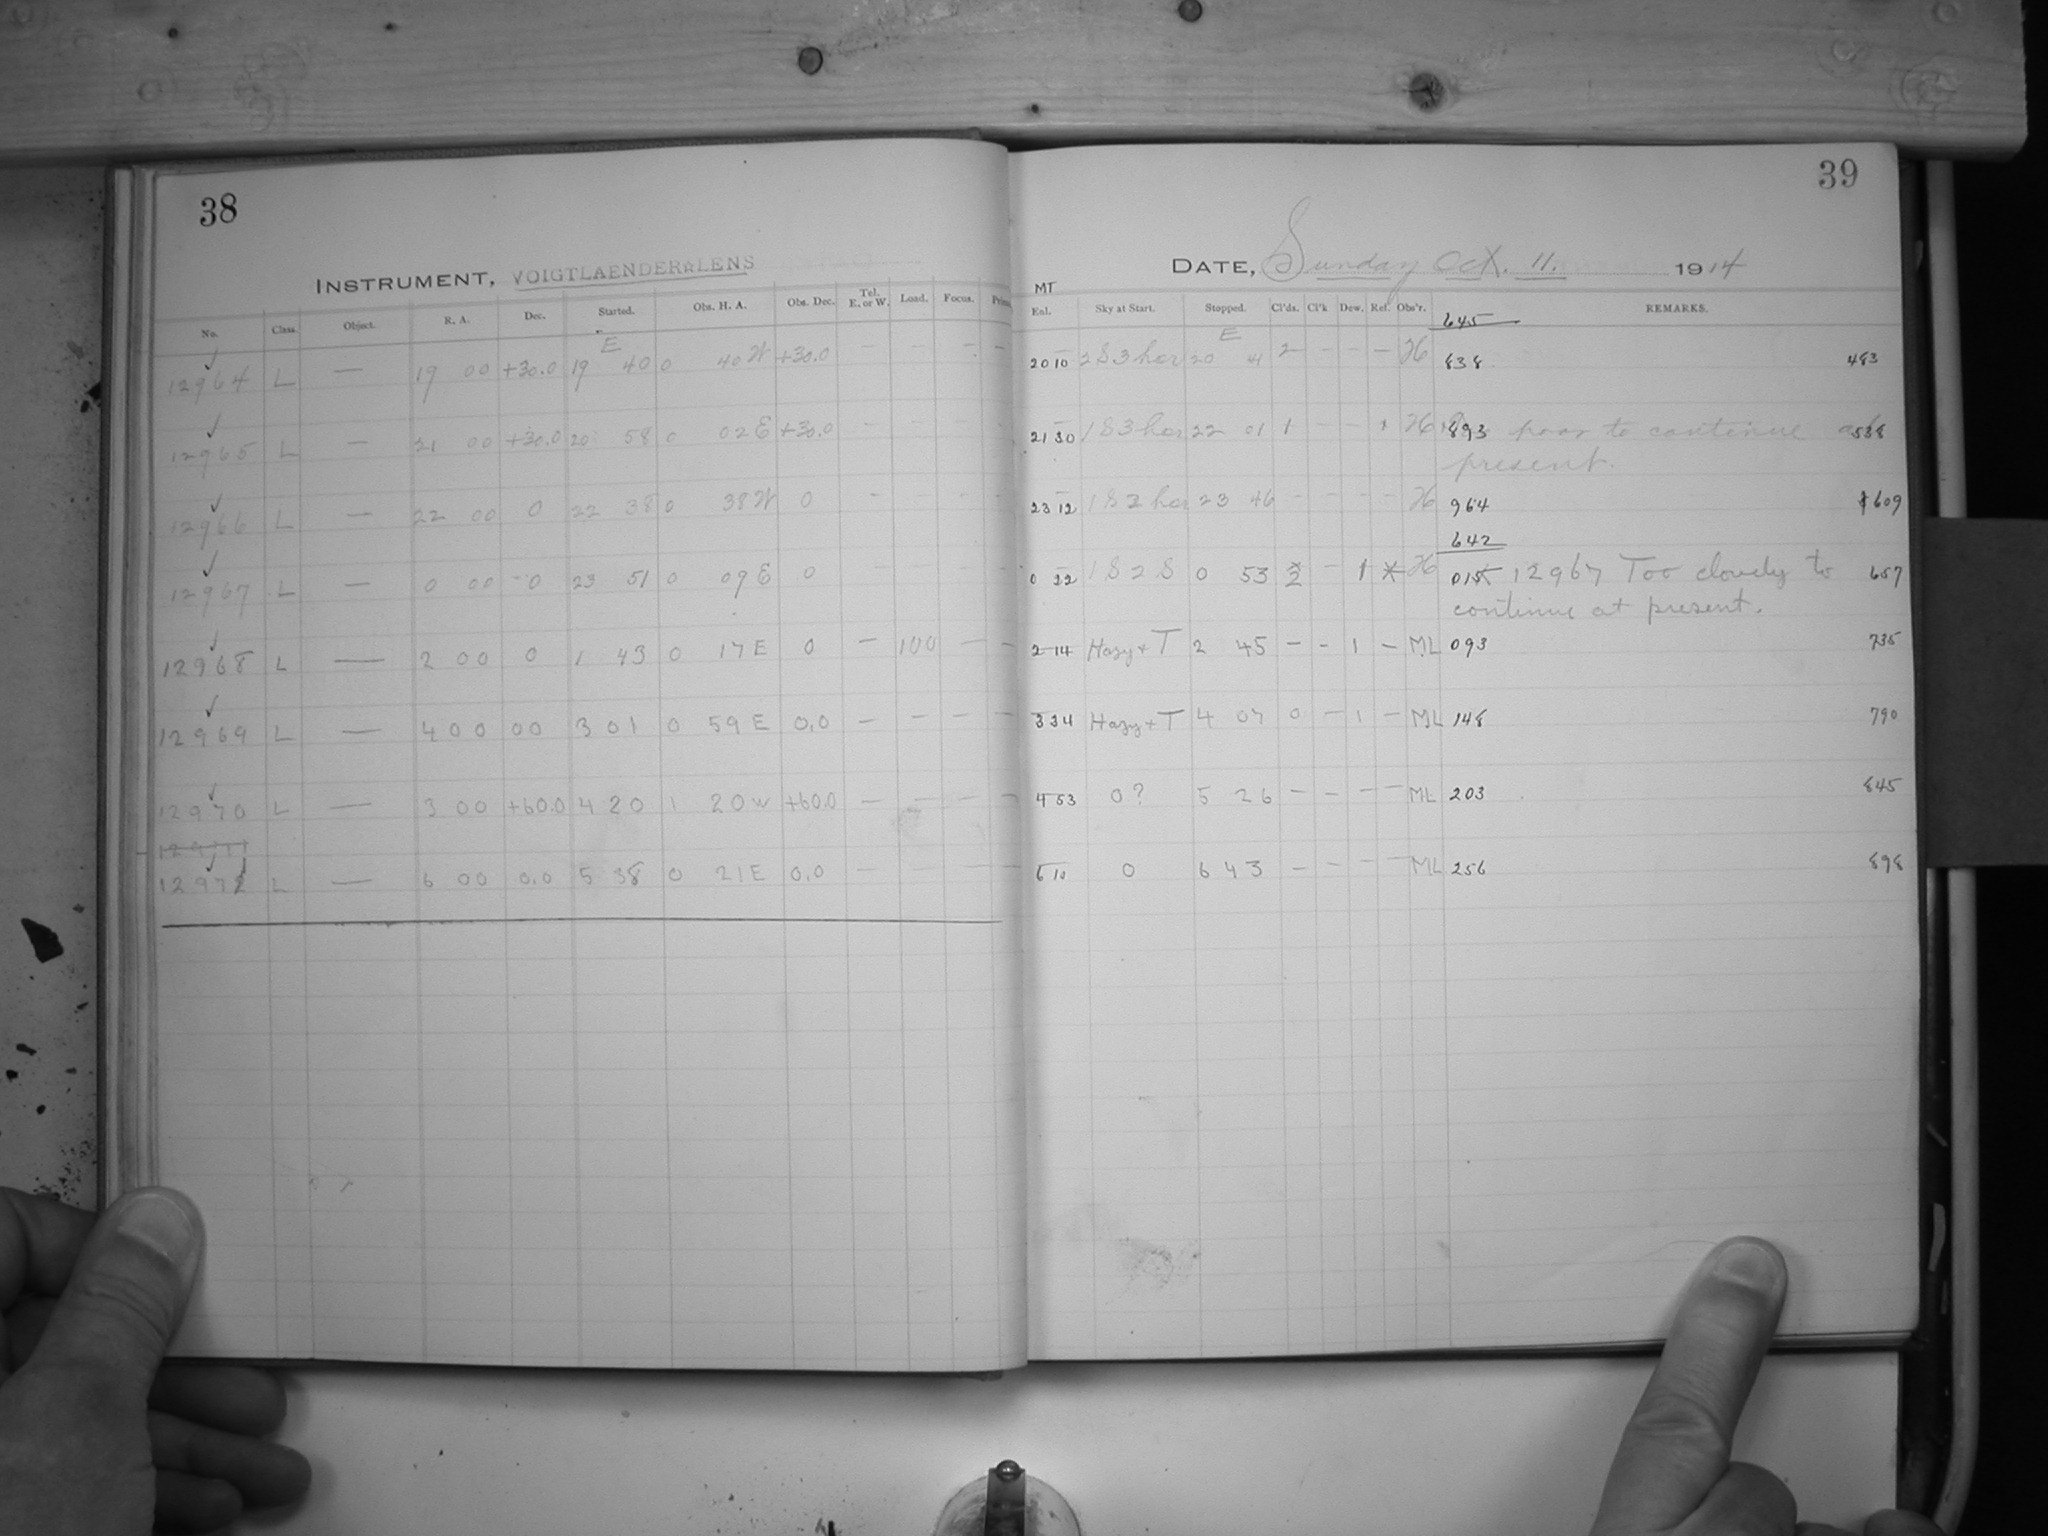 38
INSTRUMENT, VOIGTLAENDER LENS
No. Class. Object. R. A. Dec. Started. Obs. H. A. Obs. Dec. Tel. E. or W. Load. Focus.
E
12964 L — 19 00 +30.0 19 40 0 40 W +30.0 — — — —
12965 L — 21 00 +30.0 20 58 0 02 E +30.0
12966 L — 22 00 0 22 38 0 38 W 0 — — — —
12967 L — 0 00 0 23 51 0 09 E 0
12968 L — 2 00 0 1 43 0 17 E 0 — 100 — —
12969 L — 4 00 00 3 01 0 59 E 0.0 — — — —
12970 L — 3 00 +60.0 4 20 1 20 W +60.0 — — — —
12972 L — 6 00 0.0 5 38 0 21 E 0.0 — — — —
39
DATE, Sunday Oct. 11. 1914
MT
Eal. Sky at Start. Stopped. Cl'ds. Cl'k Dew. Ref. Obs'r. REMARKS.
E 645
20 10 2 S 3 hor 20 41 2 — — — H 838 483
21 30 1 S 3 hor 22 01 1 — — 1 H 893 poor to continue 538
present.
23 12 1 S 2 hor 23 46 — — — — H 964 609
642
0 22 1 S 2 S 0 53 2 — 1 H 015 12967 Too cloudy to 657
continue at present.
2 14 Hazy + T 2 45 — — 1 — ML 093 735
3 34 Hazy + T 4 07 0 — 1 — ML 148 790
4 53 0? 5 26 — — — — ML 203 845
6 10 0 6 43 — — — — ML 256 898